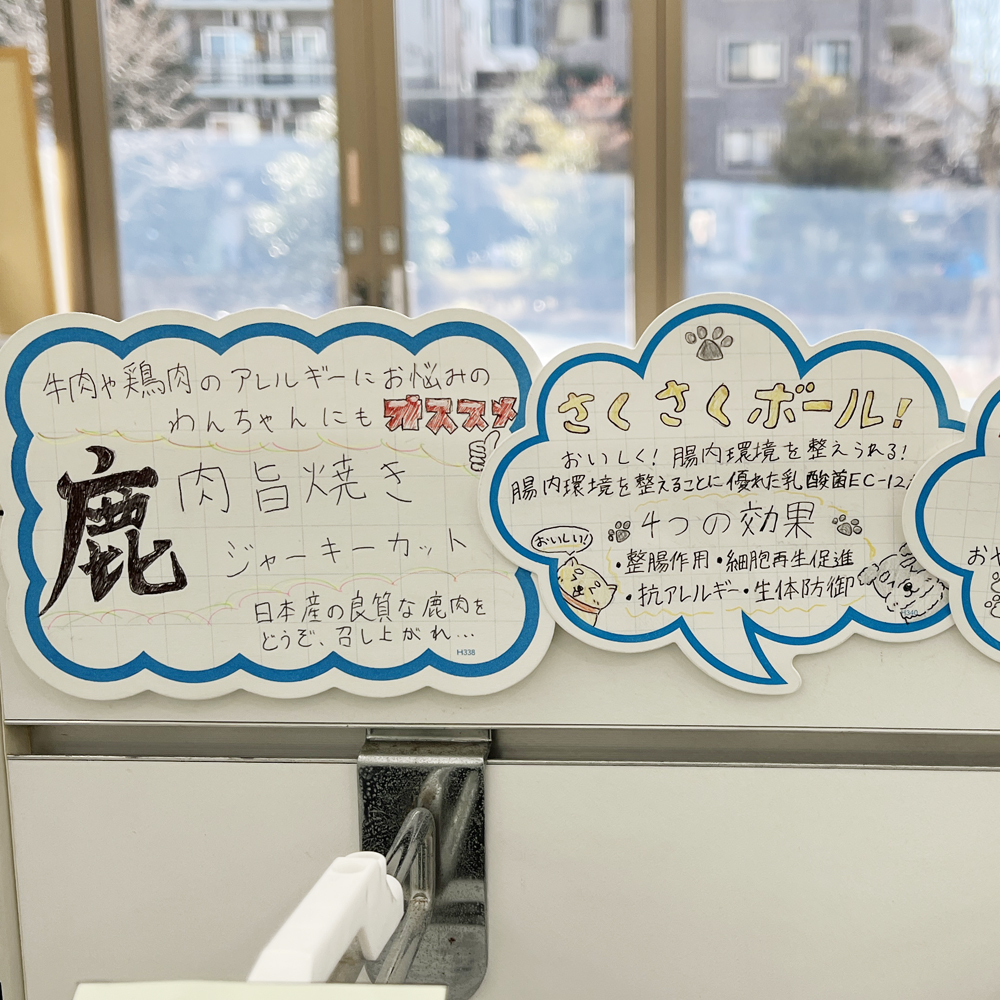 牛肉や鶏肉のアレルギーにお悩みの
わんちゃんにもオススメ
鹿肉旨焼き
ジャーキーカット
日本産の良質な鹿肉を
どうぞ、召し上がれ…
H338
さくさくボール!
おいしく!腸内環境を整えられる!
腸内環境を整えることに優れた乳酸菌EC-12
4つの効果
・整腸作用・細胞再生促進
・抗アレルギー・生体防御
おいしい!
H340
おや